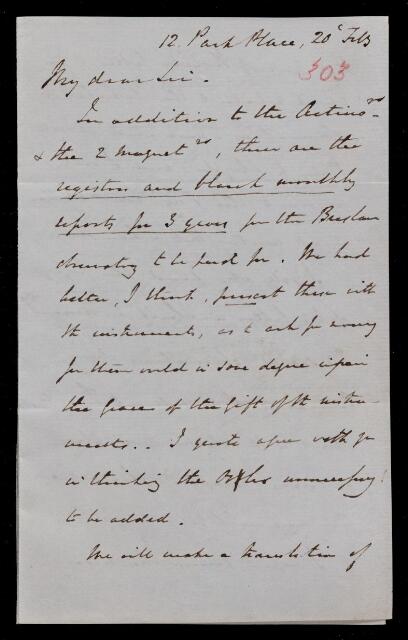 12. Park Place, 20' Feb
303
My dear Sir.
In addition to the Actino^rs
& the 2 magnet^rs, there are the
registers and blank monthly
reports for 3 years for the Breslau
observatory to be paid for. We had
better, I think, present these with
the instruments, as to ask for money
for them would in some degree impair
the grace of the Gift of the instru-
ments.. I quite agree with you
in thinking the unnecessary
to be added.
We will make a translation of